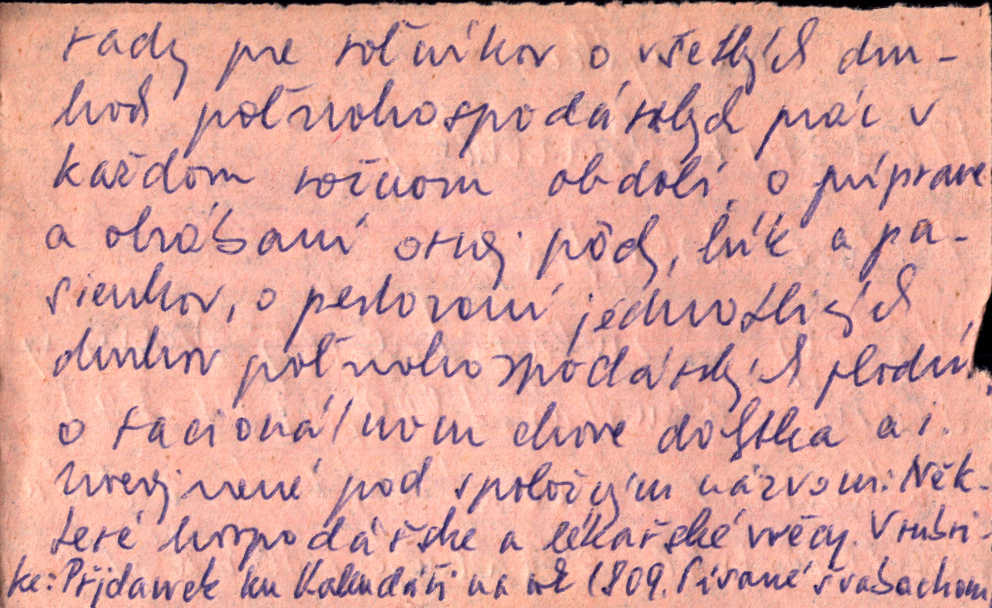 rady pre roľníkov o všetkých dru-
hoch poľnohospodárskych prác v
každom ročnom období, o príprave
a obrábaní ornej pôdy, lúk a pa-
sienkov, o pestovaní jednotlivých
druhov poľnohospodárskych plodín,
o racionálnom chove dobytka a i.
uverejnené pod spoločným názvom: Něk-
teré hospodářske a lékařské věcy. V rubri-
ke: Přjdawek ku Kalendáři na rok 1809. Písané švabachom,